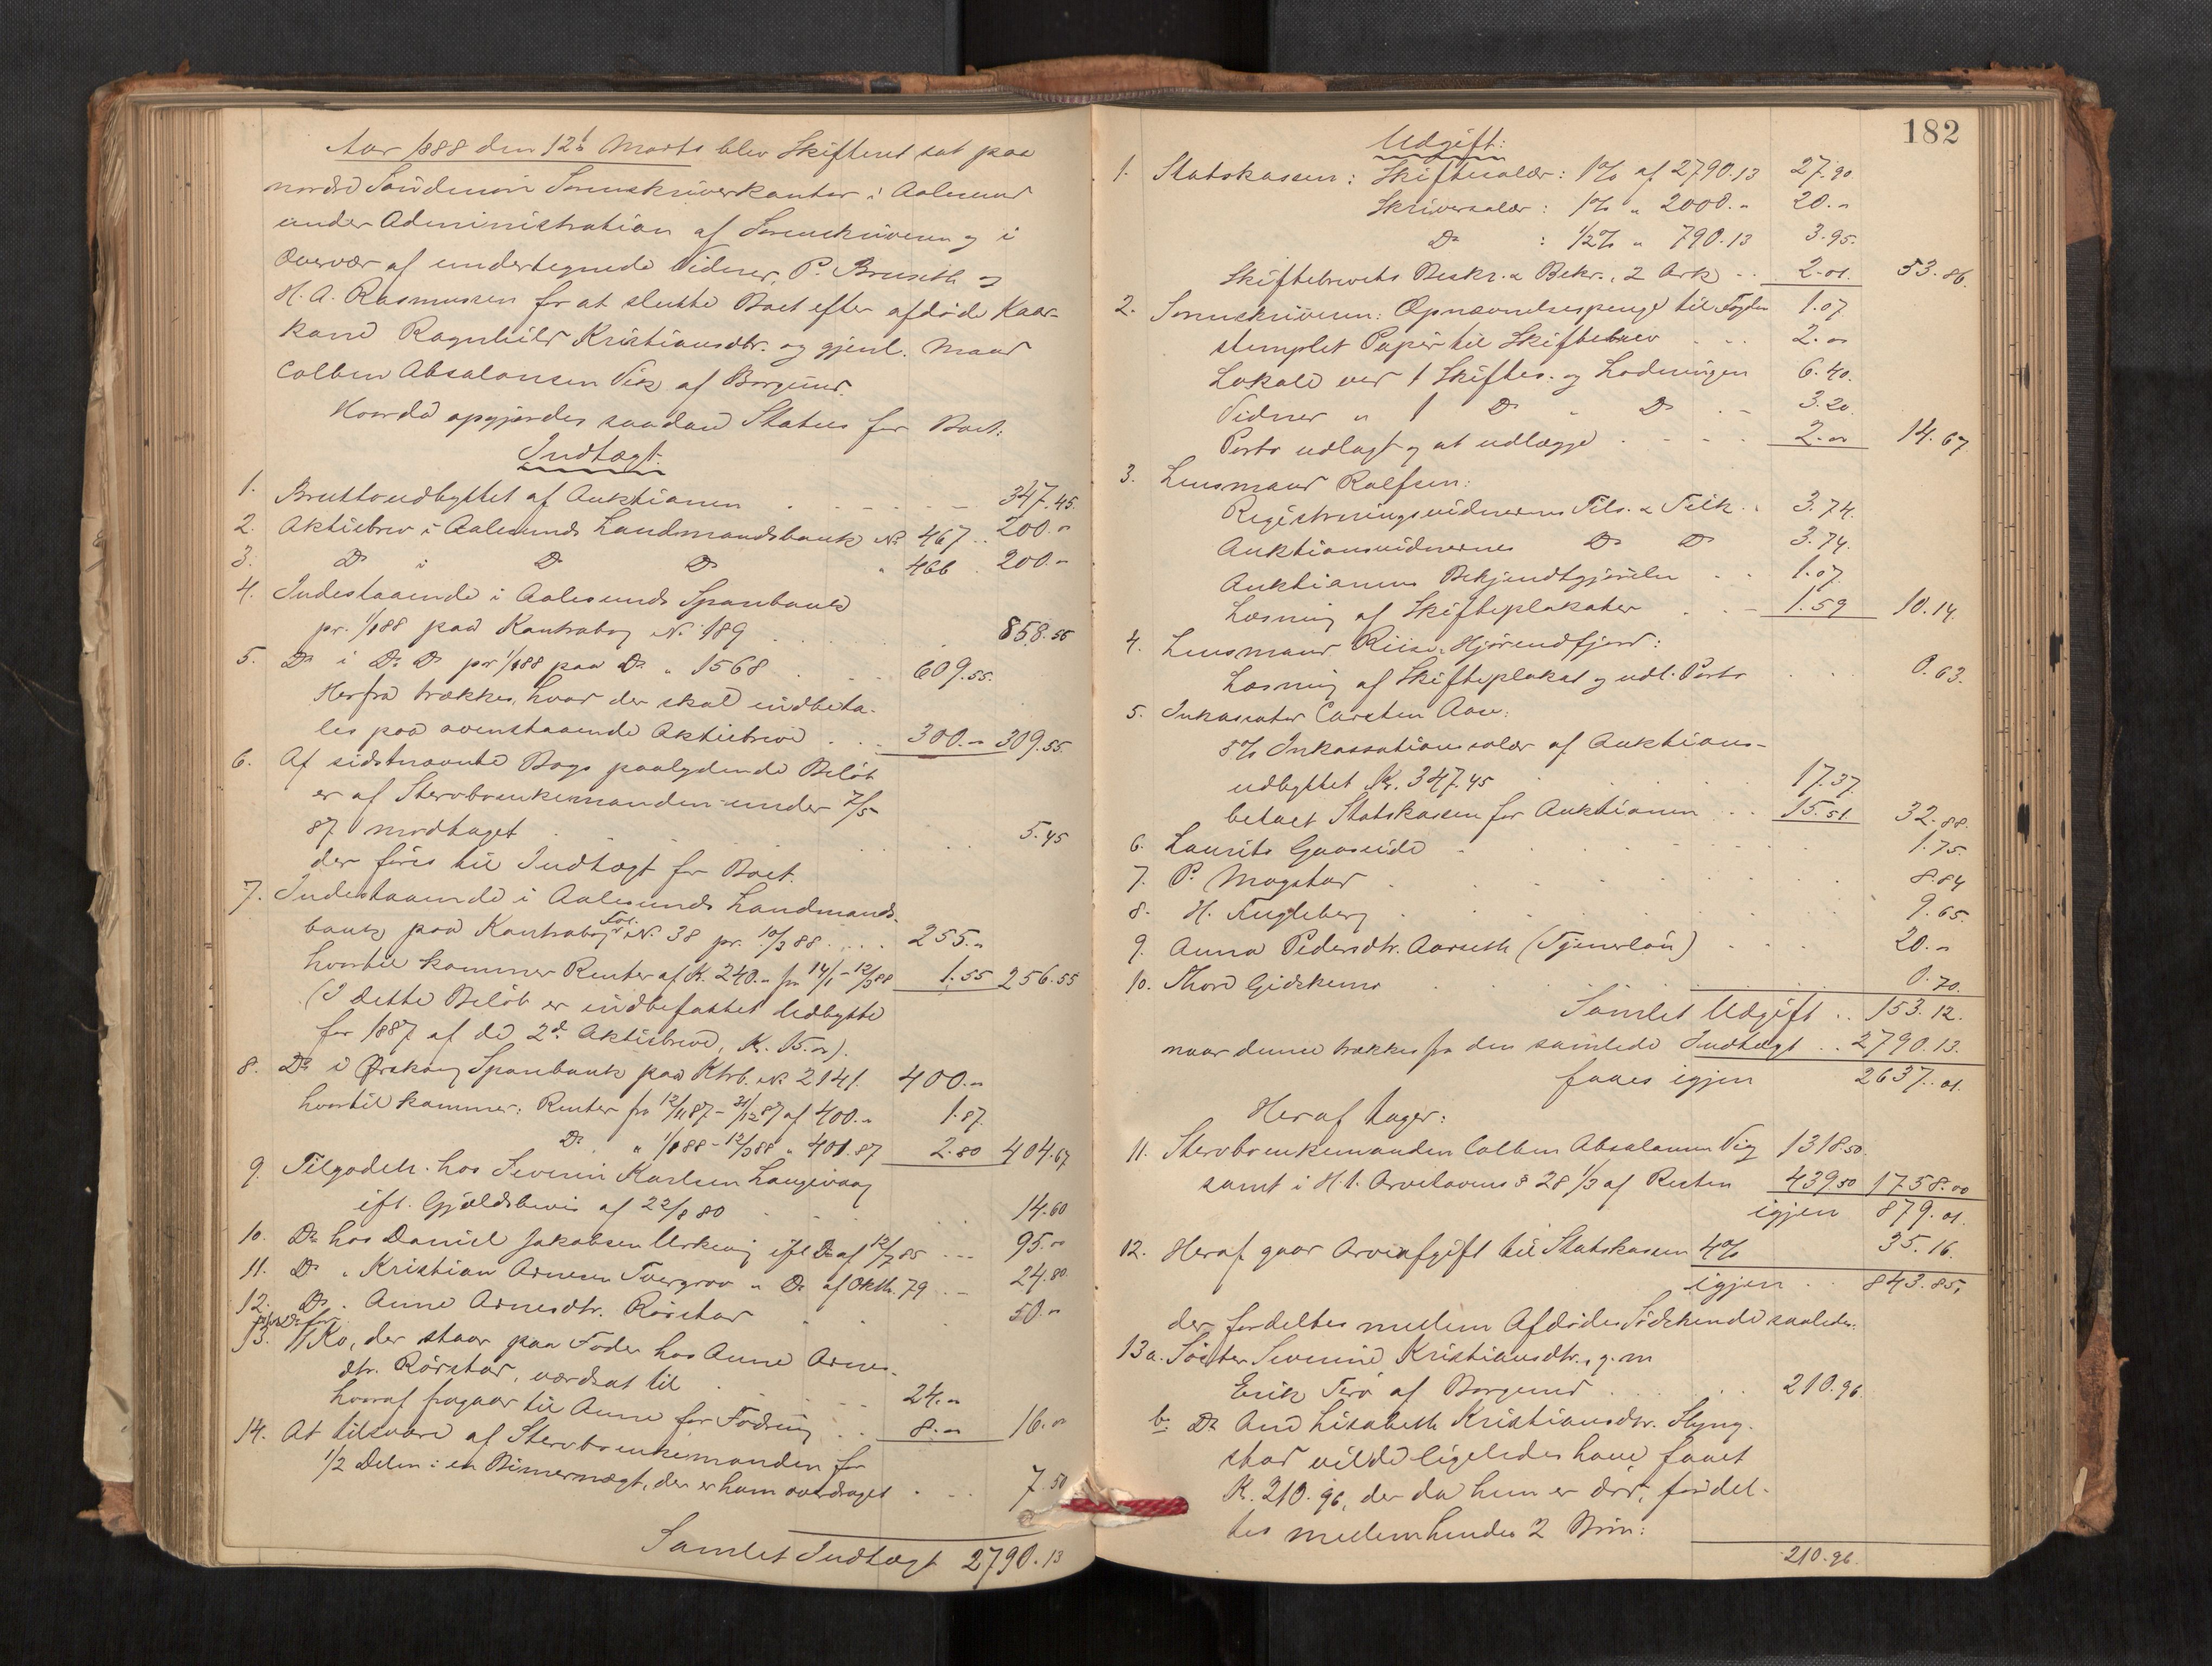 Aar 1888 den 12t Marts blev Skiftet sat paa
nordre Söndmör Sorenskriverkontor i Aalesund
under Administration af Sorenskriveren og i
Overvær af undertegnede Vidner, P. Bruseth og
H. A. Rasmussen for at slutte Boet efter afdöde Kaar-
kone Ragnhild Kristiansdtr. og gjenl. Mand
Colben Absalonsen Vik af Borgund.
Hvorda opgjordes saadan Status for Boet:
Indtægt.
1. Bruttoudbyttet af Auktionen 347.45.
2. Aktiebrev i Aalesunds Landmandsbank No 467 .. 200.„
3. Do i Do Do „ 466 . 200.„
4. Indestaaende i Aalesunds Sparebank
pr. 1/1 88 paa Kontrabog No 189 858.55
5. Do i Do Do pr 1/1 88 paa Do „ 1568 609.55.
Herfra trækkes, hvad der skal indbeta-
les paa ovenstaaende Aktiebreve 300.„ 309.55.
6. Af sidstnævnte Bogs paalydende Belöb
er af Stervboenkemanden under 7/5
87 modtaget 5.45
der föres til Indtægt for Boet.
7. Indestaaende i Aalesunds Landmands-
bank paa Kontrabog Fol. No. 38 pr. 10/3 88 .... 255.„
hvortil kommer Renter af K. 240.„ fra 14/1 - 12/3 88 1.55 256.55
(I dette Belöb er indbefattet Udbytte
for 1887 af de 2de Aktiebreve, K. 15.„).
8. Do i Ørskog Sparebank paa Ktrb. No 2141. 400.„
hvortil kommer: Renter fra 12/11 87 - 31/12 87 af 400.„ 1.87.
Do „ 1/1 88 - 12/3 88 „ 401.87 2.80 404.67
9. Tilgodeh. hos Severin Karlsen Langevaag
ifl. Gjældsbevis af 22/8 80 14.60
10. Do hos Daniel Jakobsen Urkevig ifl Do af 12/7 85 ... 95.„
11. Do „ Kristian Arnesen Tvergrov „ Do af Oktb. 79 .. 24.80
12. Do „ Anne Arnesdtr. Rörstad 50.„
13. 1 Ko, der staar paa Foder hos Anne Arnes-
dtr. Rörstad, værdsat til 24.„
hvoraf fragaar til Anne for Fodring 8.„ 16.„
14. At tilsvare af Stervboenkemanden for
1/2 Delen i en Bismervægt, der er ham overdraget 7.50
Samlet Indtægt 2790.13
182
Udgift:
1. Statskassen: Skiftesalær: 1% af 2790.13 27.90
Skriversalær: 1% „ 2000.„ 20.„
Do : 1/2% „ 790.13 3.95.
Skiftebrevets Beskr. & Bekr., 2 Ark .. 2.01. 53.86.
2. Sorenskriveren: Opnævnelsespenge til Fogden 1.07.
stemplet Papir til Skiftebrev 2.„
Lokale ved 1 Skiftes. og Lodningen 6.40.
Vidner „ 1 Do „ Do 3.20.
Porto udlagt og at udlægge 2.„ 14.67.
3. Lensmand Rolfsen:
Registreringsvidnernes Tils. & Tilk. . 3.74.
Auktionsvidnernes Do Do 3.74.
Auktionens Bekjendtgjörelse 1.07.
Læsning af Skifteplakater 1.59 10.14.
4. Lensmand Riise, Hjörendfjord:
Læsning af Skifteplakat og udl. Porto 0.63.
5. Inkassator Carsten Aase:
5% Inkassationssalær af Auktions-
udbyttet Kr. 347.45 17.37.
betalt Statskassen for Auktionen .. 15.51. 32.88.
6. Laurits Gaaseide 1.75.
7. P. Mogstad 8.84
8. H. Fugleberg 9.65.
9. Anna Pedersdtr. Aarseth (Tjenerlön) 20.„
10. Thore Gidskemo 0.70.
Samlet Udgift .. 153.12.
naar denne trækkes fra den samlede Indtægt .. 2790.13.
faaes igjen 2637.01.
Heraf tager:
11. Stervboenkemanden Colben Absalonsen Vig 1318.50.
samt i H. t. Arvelovens § 28 1/3 af Resten 439.50 1758.00
igjen 879.01.
12. Heraf gaar Arveafgift til Statskassen 4% 35.16.
igjen .. 843.85,
der fordeltes mellem Afdödes Södskende saaledes:
13a. Söster Severine Kristiansdtr., g. m
Erik Terö af Borgund 210.96.
b. Do Ane Lisabeth Kristiansdtr. Slyng-
stad vilde ligeledes have faaet
K. 210.96, der da hun er död, fordel-
tes mellem hendes 2 Börn:
210.96.